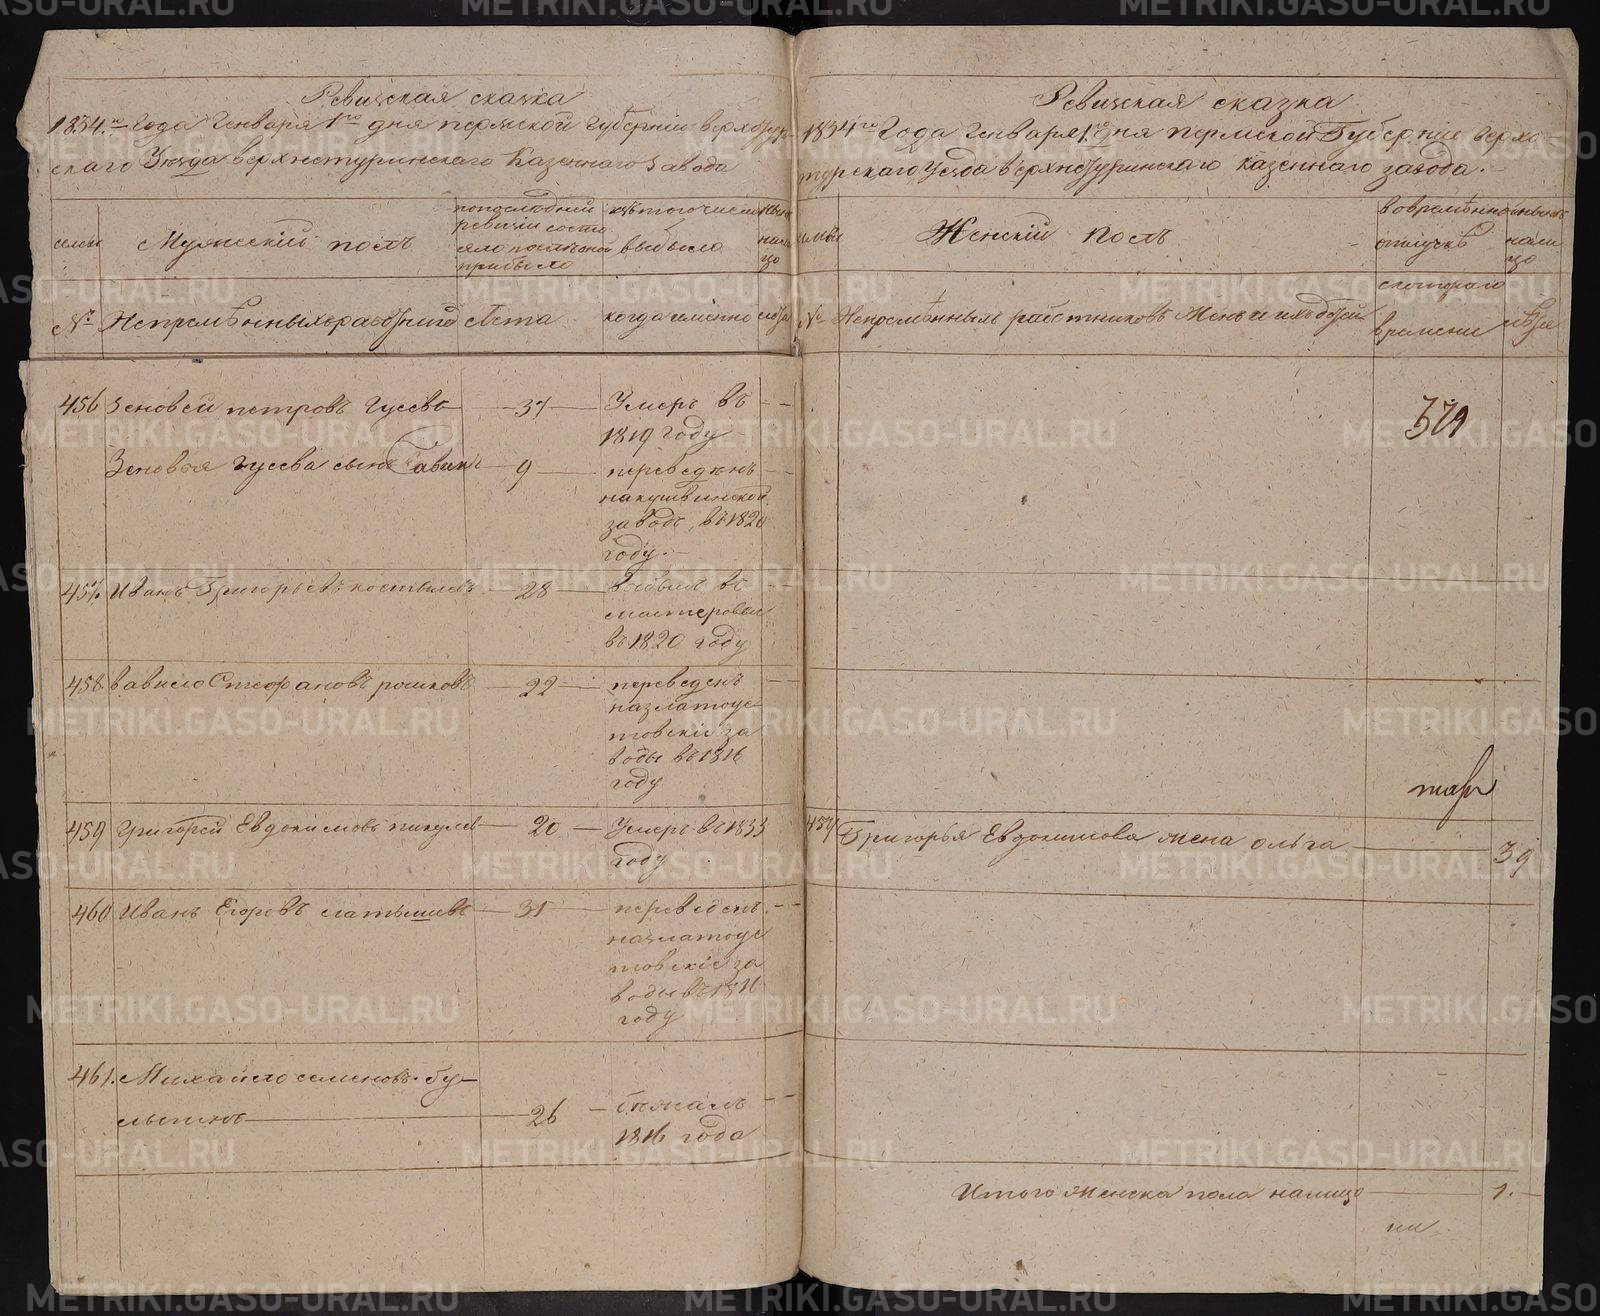 Ревизская сказка
1834.го Года Генваря 1го дня пермской губернии верхотур-
скаго Уезда верхнетуринскаго Казеннаго завода
семьи
Мужеский полъ
попоследней ревизии состояло после оной прибыло
изтого числа выбыло
ныне налицо
№
Непремѣнныхъ работник
лета
когда именно
лета
456 Зеновей петровъ Гусевъ 37 Умеръ въ
1819 году
Зеновья Гусева сынъ Савинъ 9 переведенъ
накушвинской
заводъ, въ 1820
году.
457. Иванъ Григорьевъ костылевъ 28 выбылъ въ
мастеровыя
въ 1820 году
458 Вавило Стефановъ рошковъ 22 переведенъ
назлатоус
товскіе за
воды въ 1816
году
459 Григорей Евдокимовъ пикулев 20 Умеръ въ 1833
году
460 Иванъ Егоровъ латышевъ 31 переведенъ
назлатоус
товскіе за
воды въ 1816
году
461. Михайло семеновъ бу-
лыгинъ 26 бежалъ
1816 года
Ревизская сказка
1834го Года Генваря 1.го дня пермской Губерніи верхо-
турскаго Уезда верхнетуринскаго казеннаго завода.
семьи
Женскій полъ
вовременной отлучкѣ
ныне налицо
скотораго
№
Непремѣнныхъ работниковъ Жены и ихъ дети
времени
лета
459 Григорья Евдокимова жена ольга 39
Итого женска пола налицо 1.
METRIKI.GASO-URAL.RU